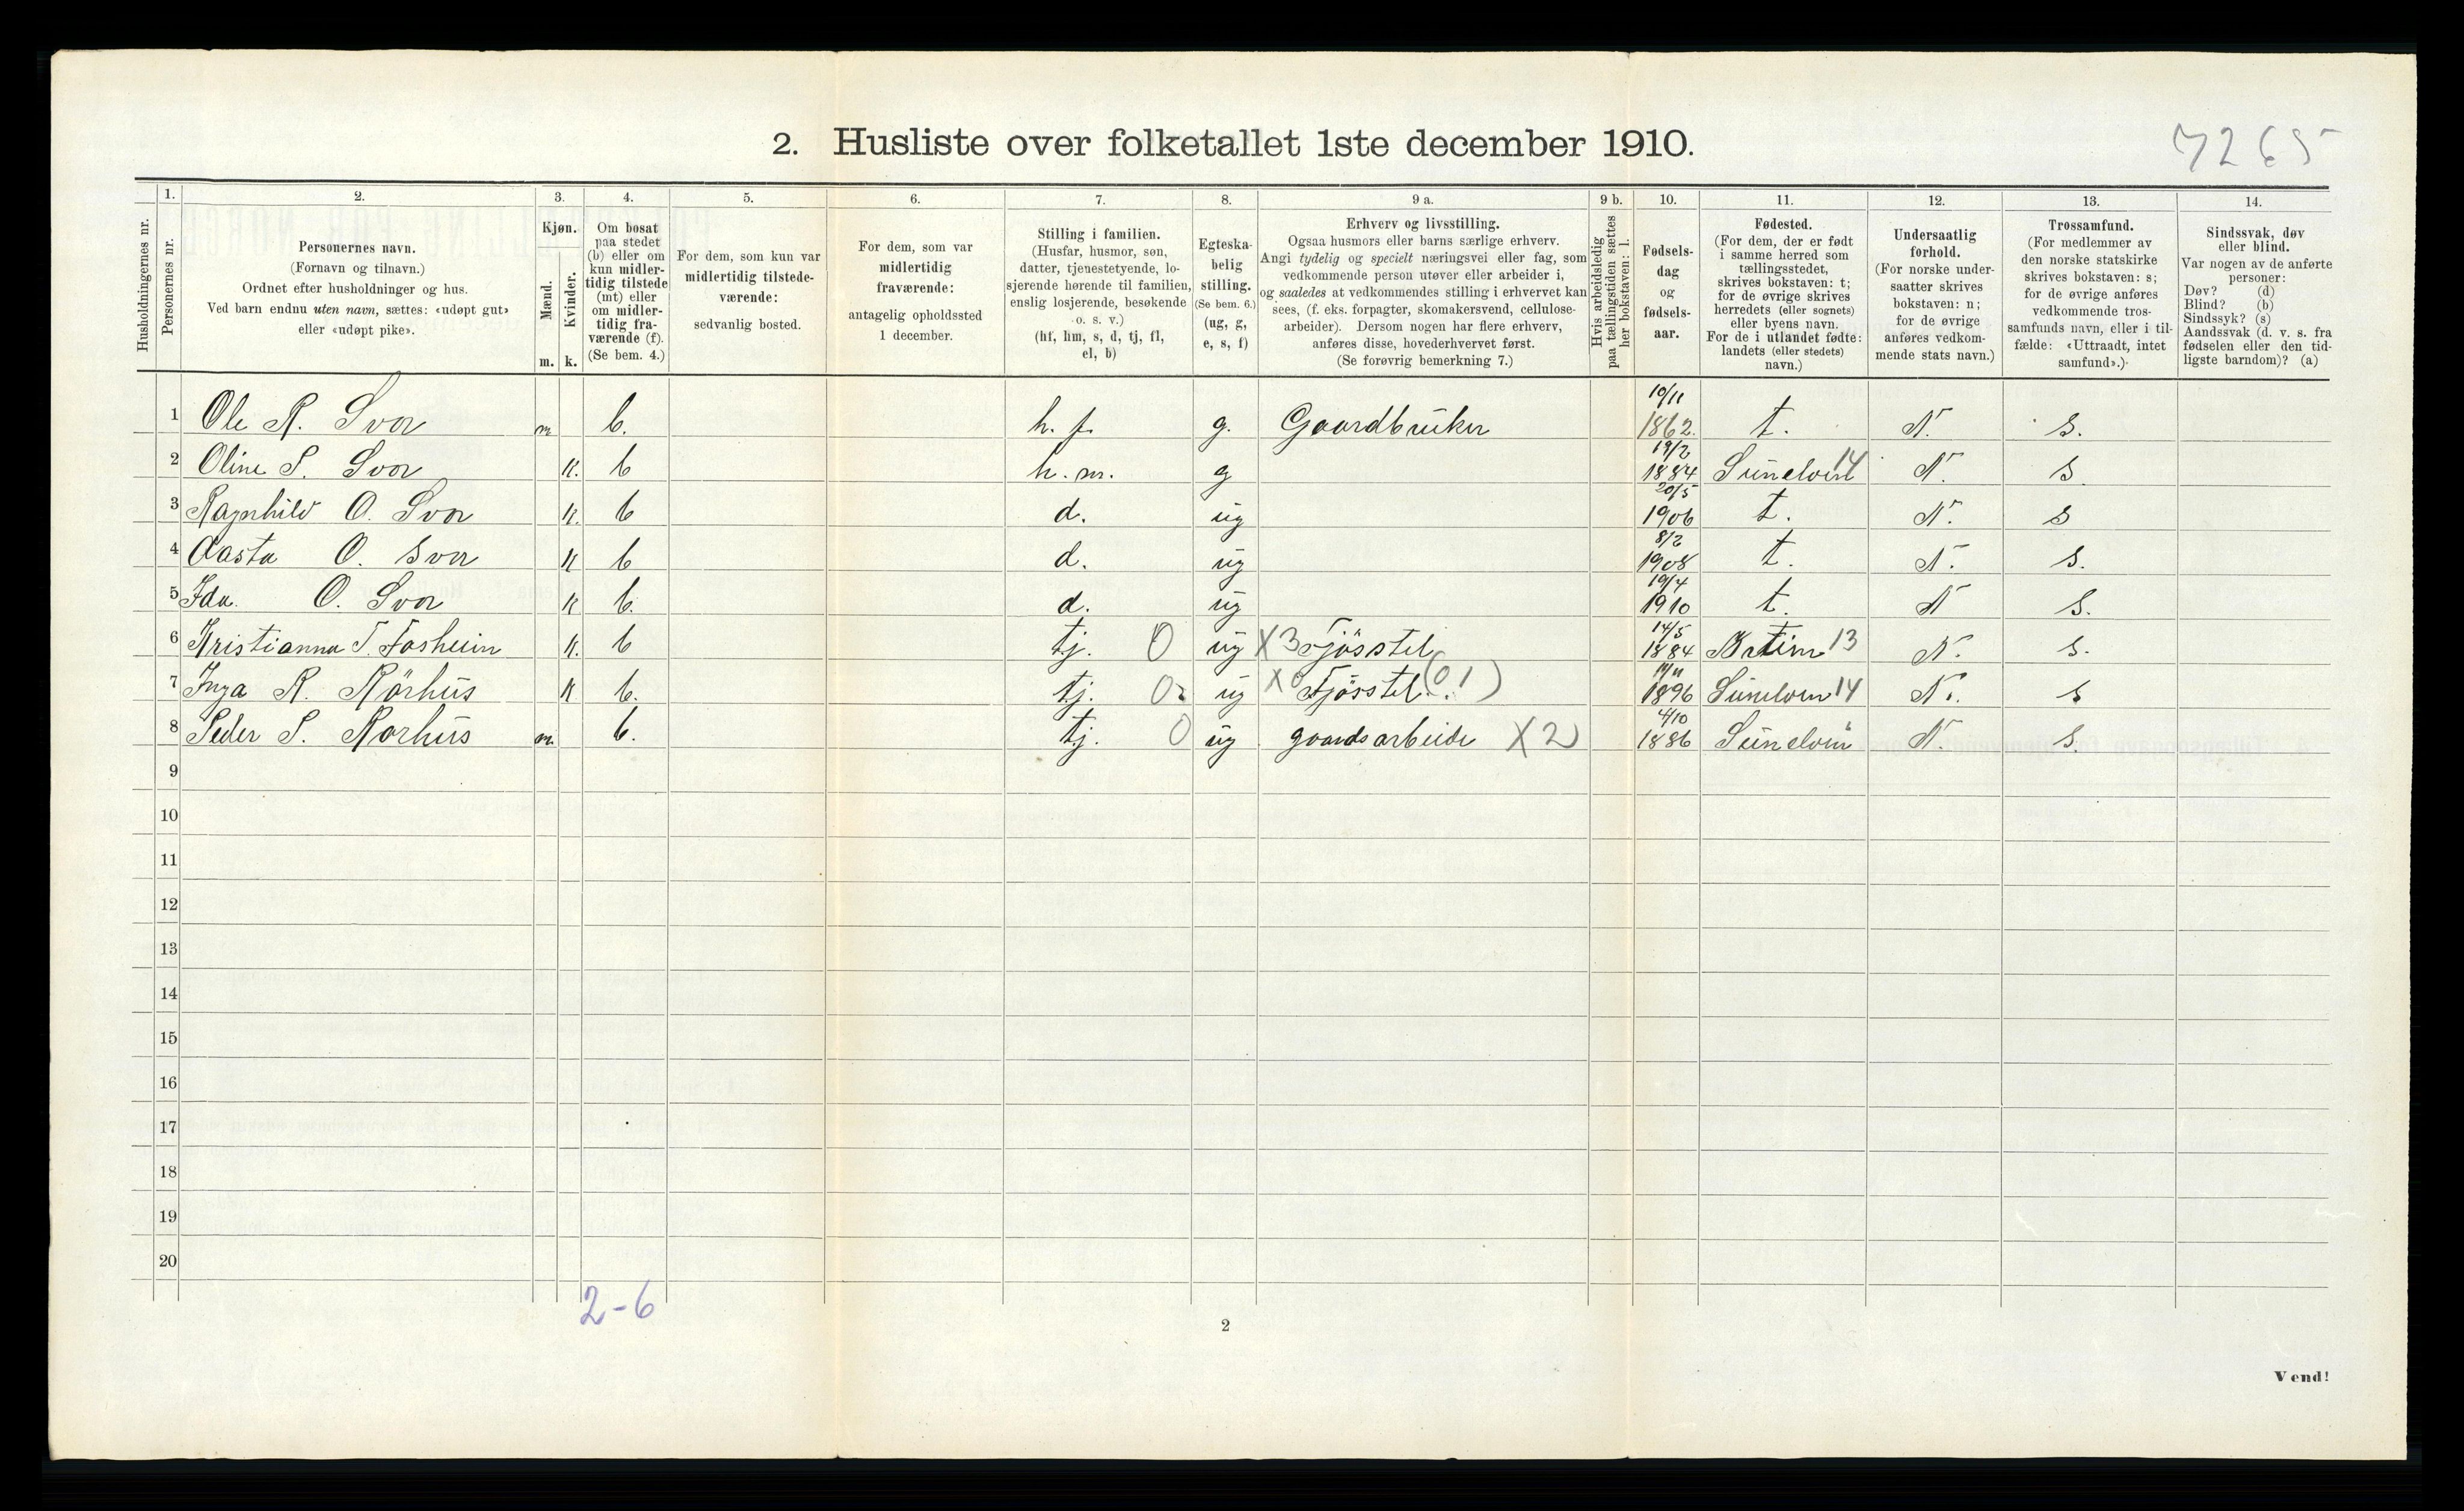 2. Husliste over folketallet 1ste december 1910.
7265
Husholdningernes nr.
1. Personernes nr.
2. Personernes navn.
(Fornavn og tilnavn.)
Ordnet efter husholdninger og hus.
Ved barn endnu uten navn, sættes: «udøpt gut»
eller «udøpt pike».
3. Kjøn.
Mænd. m.
Kvinder. k.
4. Om bosat
paa stedet
(b) eller om
kun midler-
tidig tilstede
(mt) eller
om midler-
tidig fra-
værende (f).
(Se bem. 4.)
5. For dem, som kun var
midlertidig tilstede-
værende:
sedvanlig bosted.
6. For dem, som var
midlertidig
fraværende:
antagelig opholdssted
1 december.
7. Stilling i familien.
(Husfar, husmor, søn,
datter, tjenestetyende, lo-
sjerende hørende til familien,
enslig losjerende, besøkende
o. s. v.)
(hf, hm, s, d, tj, fl,
el, b)
8. Egteska-
belig
stilling.
(Se bem. 6.)
(ug, g,
e, s, f)
9 a. Erhverv og livsstilling.
Ogsaa husmors eller barns særlige erhverv.
Angi tydelig og specielt næringsvei eller fag, som
vedkommende person utøver eller arbeider i,
og saaledes at vedkommendes stilling i erhvervet kan
sees, (f. eks. forpagter, skomakersvend, cellulose-
arbeider). Dersom nogen har flere erhverv,
anføres disse, hovederhvervet først.
(Se forøvrig bemerkning 7.)
9 b. Hvis arbeidsledig
paa tællingstiden sættes
her bokstaven: l.
10. Fødsels-
dag
og
fødsels-
aar.
11. Fødested.
(For dem, der er født
i samme herred som
tællingsstedet,
skrives bokstaven: t;
for de øvrige skrives
herredets (eller sognets)
eller byens navn.
For de i utlandet fødte:
landets (eller stedets)
navn.)
12. Undersaatlig
forhold.
(For norske under-
saatter skrives
bokstaven: n;
for de øvrige
anføres vedkom-
mende stats navn.)
13. Trossamfund.
(For medlemmer av
den norske statskirke
skrives bokstaven: s;
for de øvrige anføres
vedkommende tros-
samfunds navn, eller i til-
fælde: «Uttraadt, intet
samfund».)
14. Sindssvak, døv
eller blind.
Var nogen av de anførte
personer:
Døv? (d)
Blind? (b)
Sindssyk? (s)
Aandssvak (d. v. s. fra
fødselen eller den tid-
ligste barndom)? (a)
1 Ole R. Svor m b. h. f. g. Gaardbruker 10/11 1862. t. N. s.
2 Oline S. Svor K. b h. m. g 19/2 1884 Sunelven 14 N. s.
3 Ragnhild O. Svor K. b d. ug 20/5 1906 t. N. s
4 Aasta O. Svor K b d. ug 8/2 1908 t. N. s.
5 Ida. O. Svor K b. d. ug 19/4 1910 t. N s.
6 Kristianna T. Fosheim K. b tj. 0 ug X3 Fjösstel 14/5 1884 13 N. s.
7 Inga R. Rörhus K b. tj. 0 ug X0 Fjösstel. (01) 1896 Sunelven 14 N. s
8 Peder S. Rørhus m. b. tj. 0 ug gaardsarbeide X2 4/10 1886 Sunelven " N. s.
9
10
11
12
13
14
15
16
17
18
19
20
2-6
2
Vend!